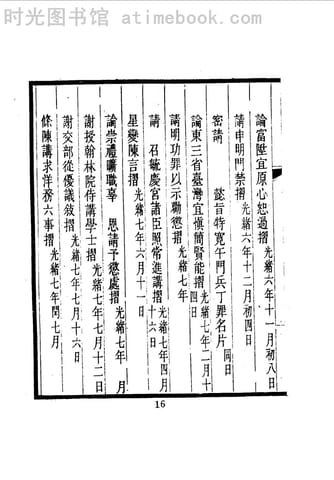 时光图书馆 - atimebook.com
論富陞宜原心恕過摺光緒六年十一月初八日
請申明門禁摺光緒六年十二月初四日
密請 懿旨特寬午門兵丁罪名片同日
論東三省臺灣宜慎簡賢能摺光緒七年二月十四日
請明功罪以示勸懲摺光緒七年
請 召毓慶宮諸臣照常進講摺光緒七年四月十六日
星變陳言摺光緒七年六月十一日
論崇禮曠職辜 恩請予懲處摺光緒七年 月
謝授翰林院侍講學士摺光緒七年七月十二日
謝交部從優議敘摺光緒七年七月十六日
條陳講求洋務六事摺光緒七年閏七月
16